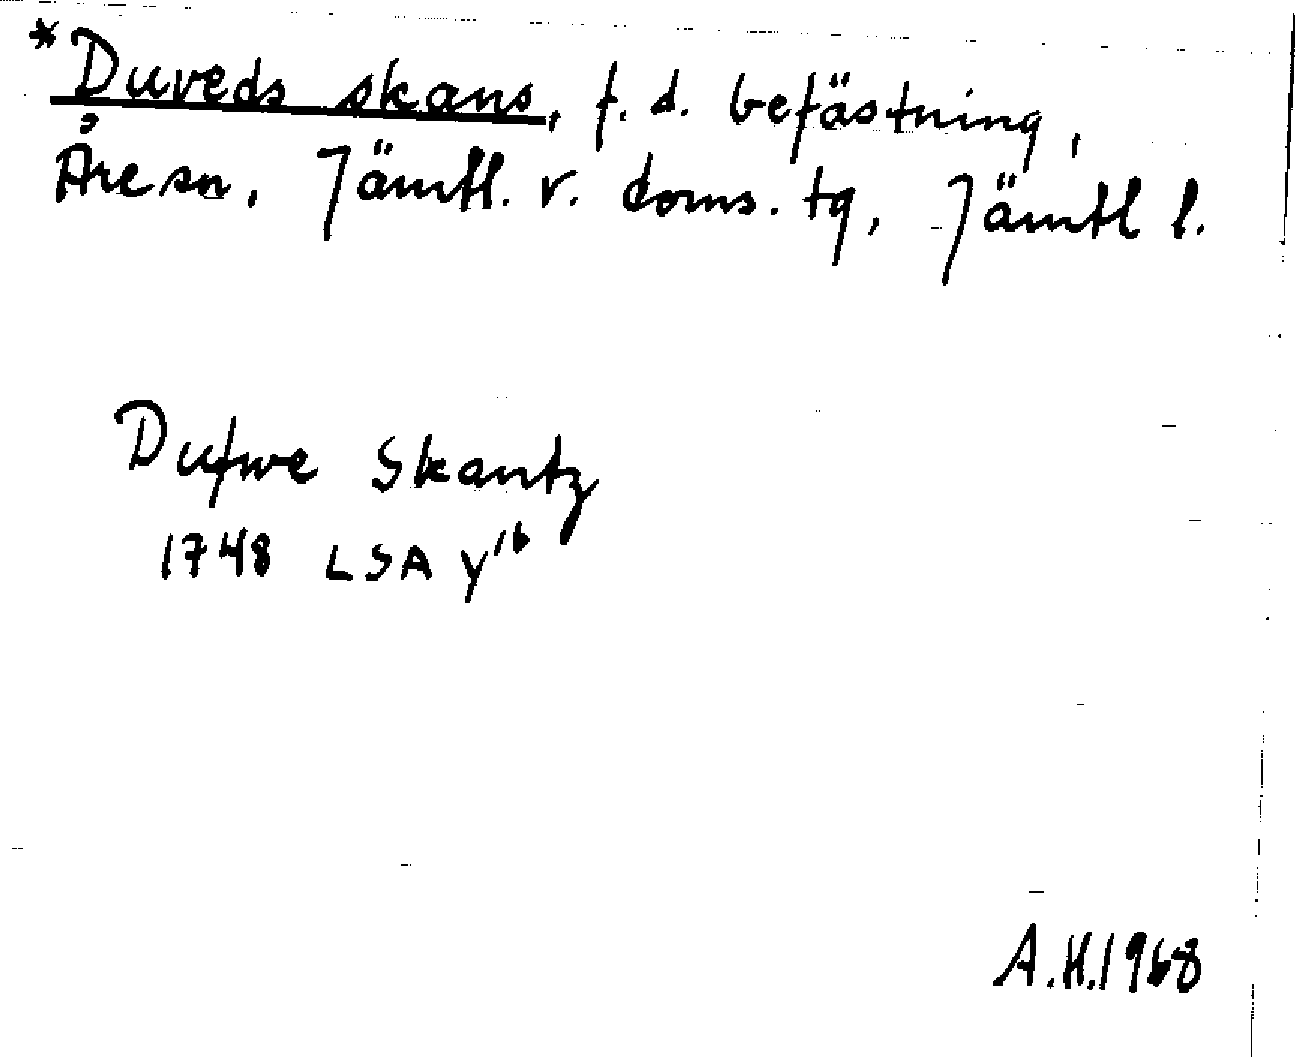 *Duveds skans, f.d. befästning,
Åre sn, Jämtl. v. doms. tg, Jämtl l.
Dufwe Skantz
1748 LSA y¹⁶
A.H.1968